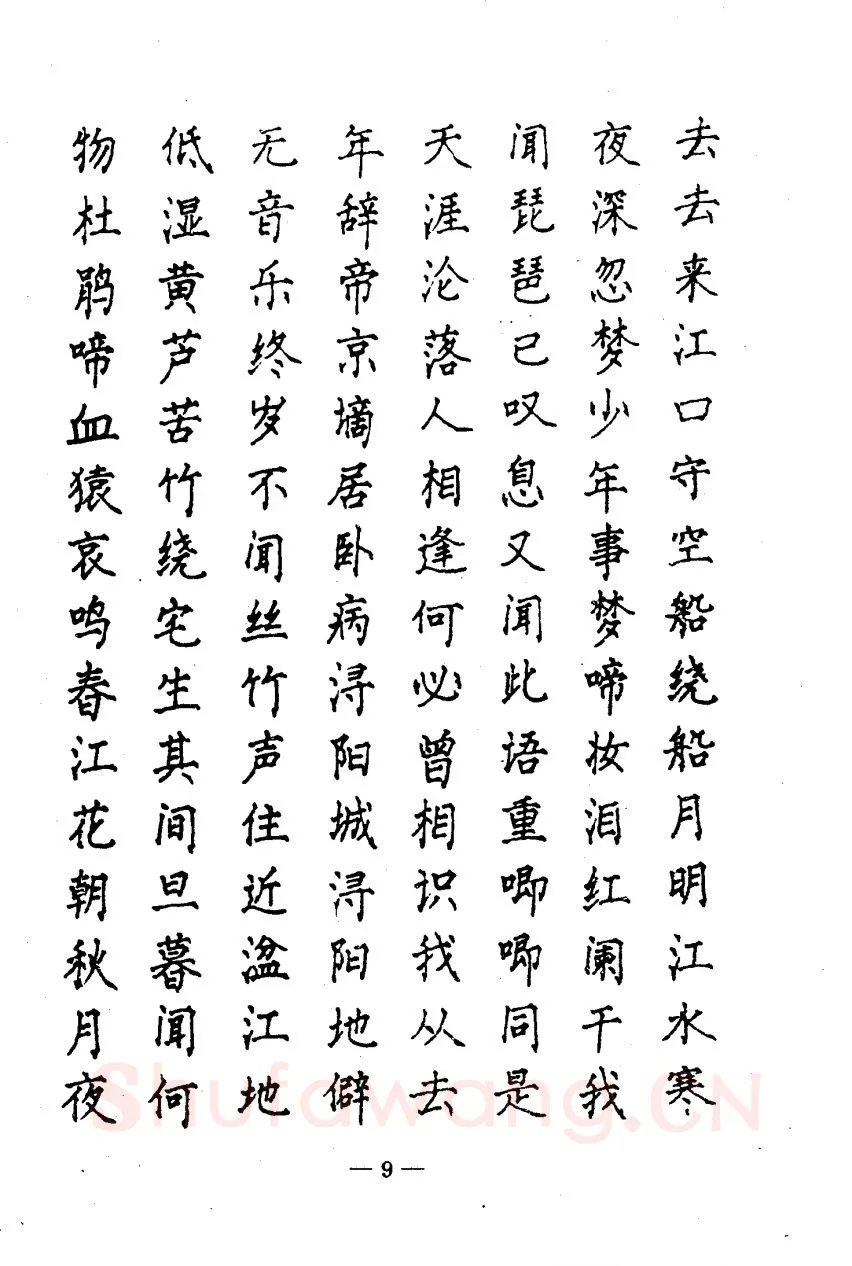 去去来江口守空船绕船月明江水寒
夜深忽梦少年事梦啼妆泪红阑干我
闻琵琶已叹息又闻此语重唧唧同是
天涯沦落人相逢何必曾相识我从去
年辞帝京墑居卧病浔阳城浔阳地僻
无音乐终岁不闻丝竹声住近湓江地
低湿黄芦苦竹绕宅生其间旦暮闻何
物杜鹃啼血猿哀鸣春江花朝秋月夜
Shufawang.CN
— 9 —